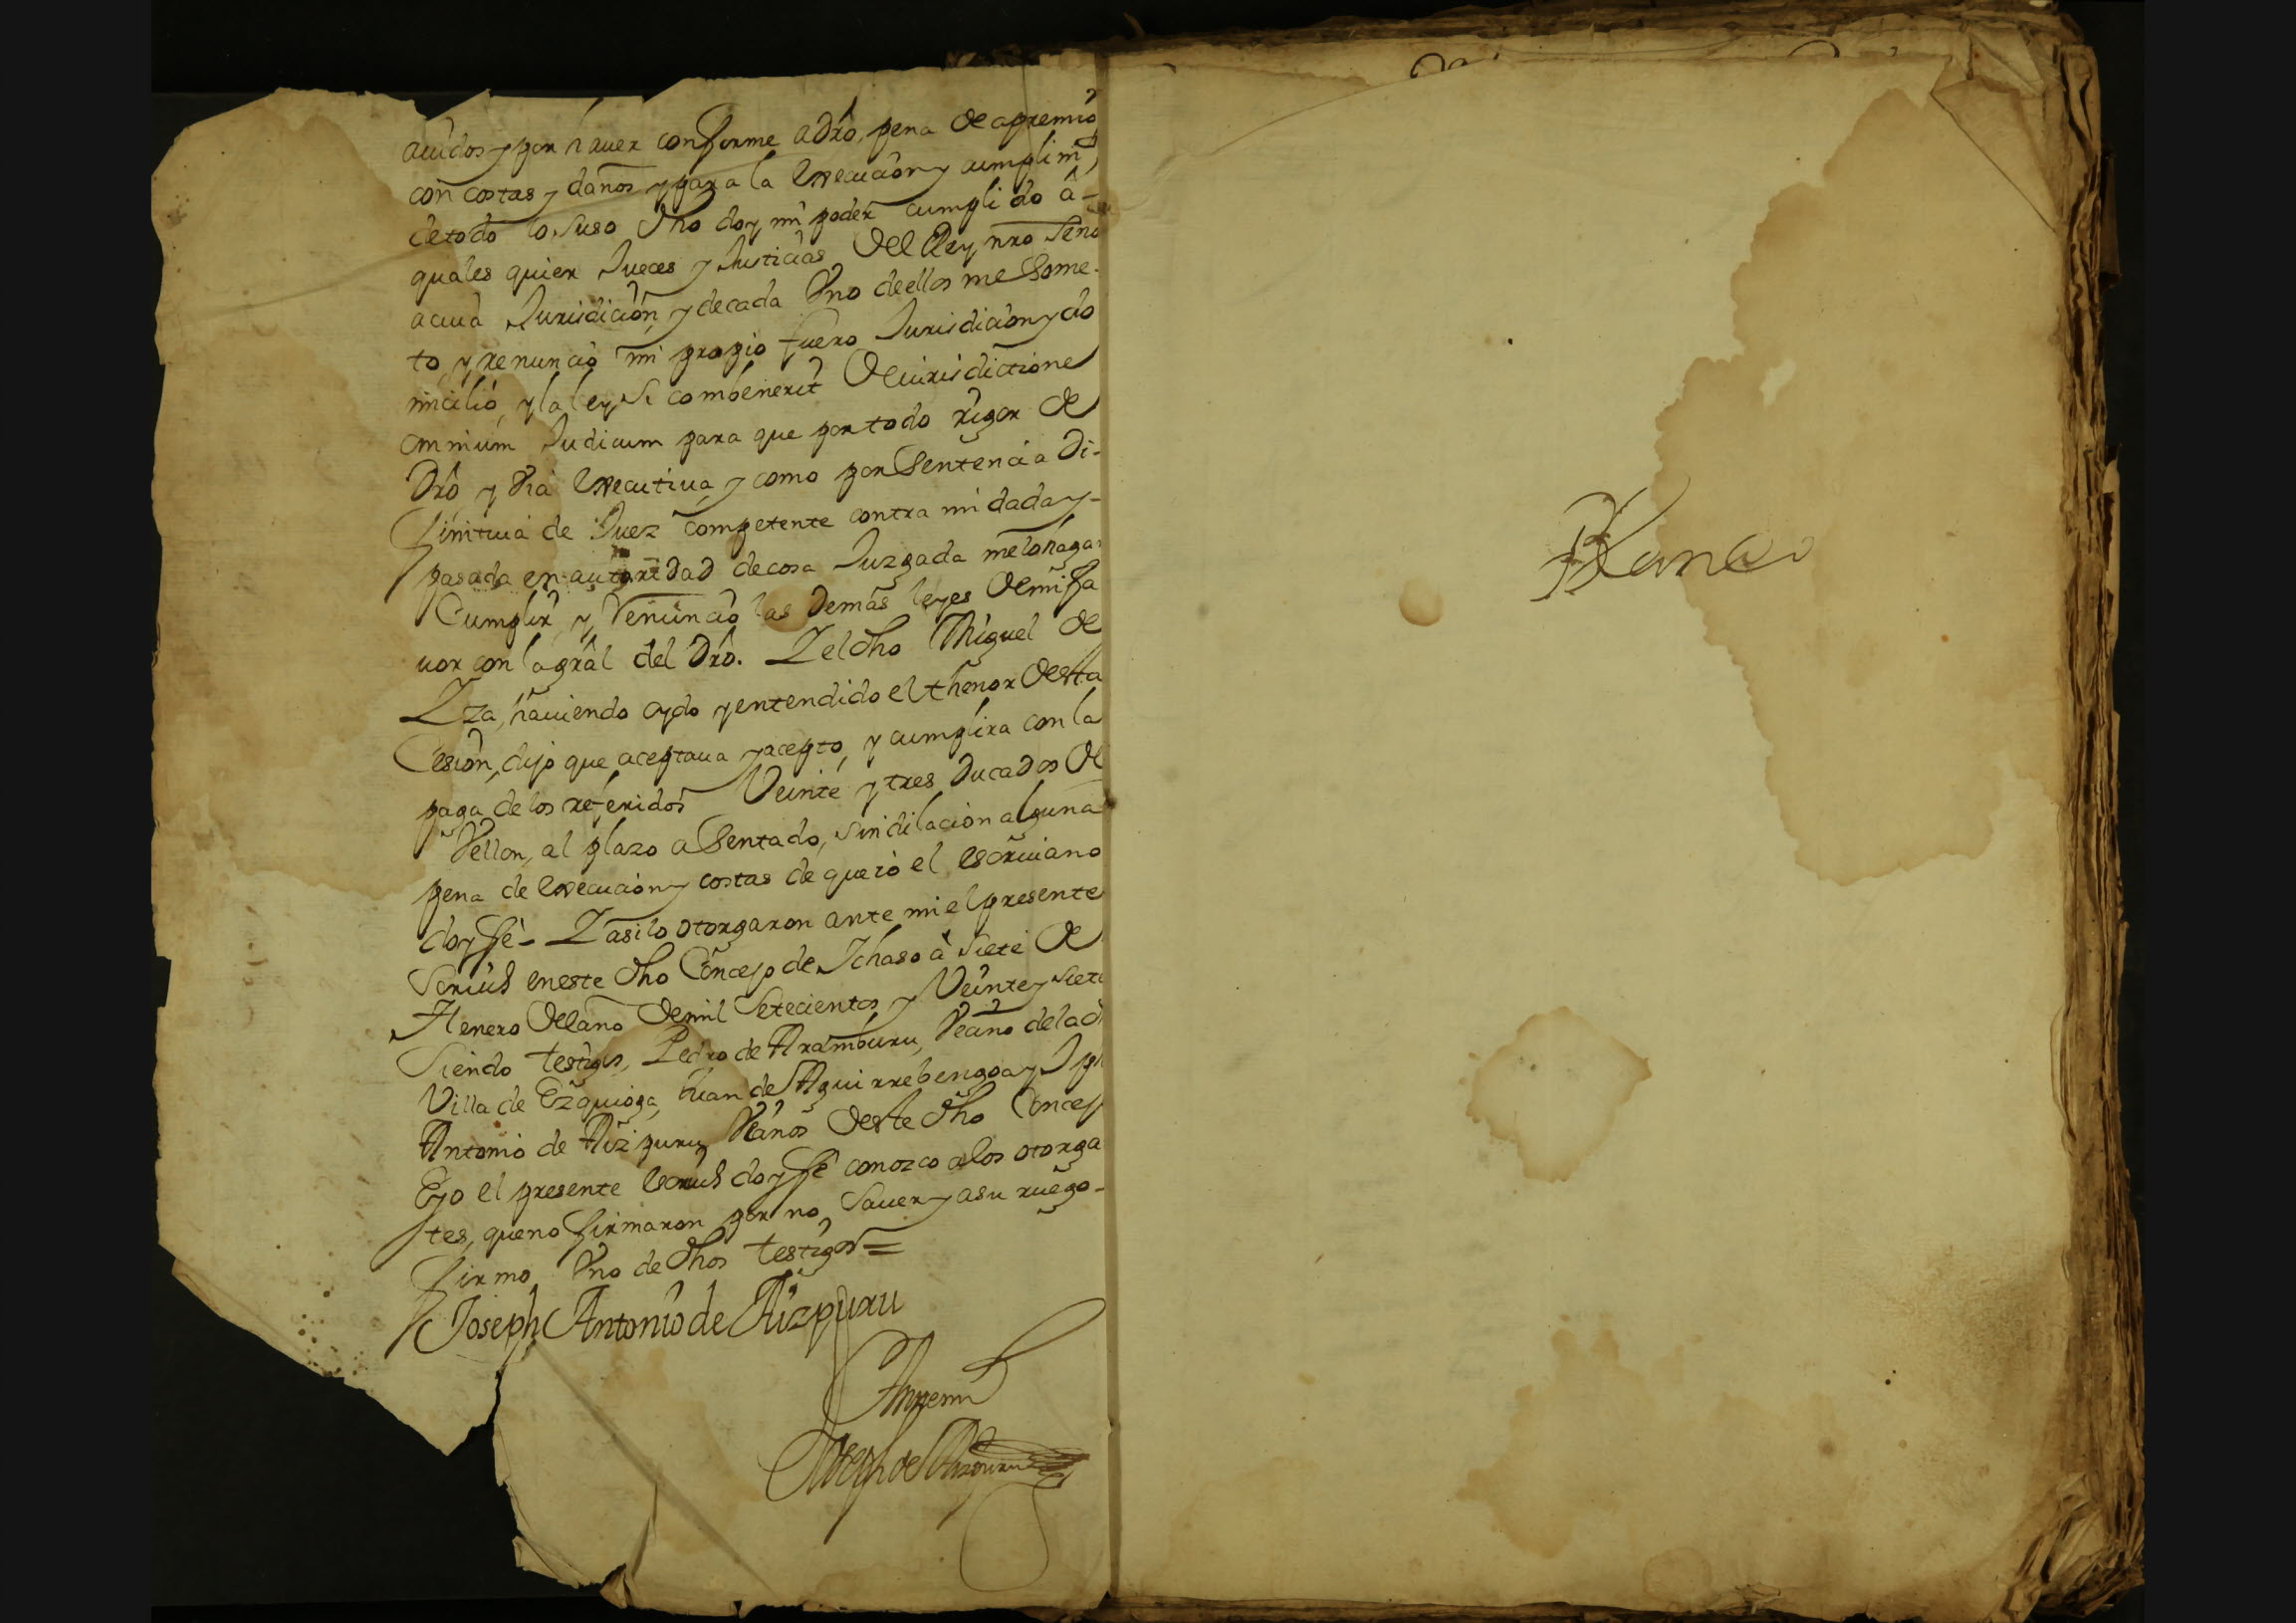 auidos y por hauer conforme a Dro, pena de apremio
con costas y daños y para la execucion y cumplimto
de todo lo suso dho doy mi poder cumplido â-
quales quier Jueces y Justicias del Rey nro Seño
a cuia Jurisdicion y de cada Uno de ellos me some-
to, y renuncio mi propio fuero Jurisdicion y do
micilio, y la ley Si combenerit de iurisdictione
omnium Judicum para que por todo rigor de
Dro y Via executiua, y como por Sentencia di-
finitiua de Juez competente contra mi dada y-
pasada en autoridad de cosa Juzgada me lo haga
Cumplir, y Renuncio las demas leyes de mi fa
uor con la gral del Dro. Y el dho Miguel de
Yza, hauiendo oydo y entendido el thenor desta
Cesion, dijo que aceptaua y acepto, y cumplira con la
paga de los referidos Veinte y tres Ducados de
Vellon, al plazo asentado, sin dilacion alguna
pena de execucion y costas de que io el escriuiano
doy fê- Y asi lo otorgaron ante mi el presente
Scriuo en este dho Concejo de Ichaso â siete de
Henero del año de mil Setecientos y Veinte y siete
Siendo testigos, Pedro de Aramburu, Vecino de la
Villa de Ezquioga, Juan de Aguirrebengoa y
Antonio de Aizpuru Vecinos deste dho Concejo
E yo el presente escriuo doy fê conozco a los otorga
tes, que no firmaron por no Sauer y a su ruego-
firmo Uno de dhos testigos =
Joseph Antonio de Aizpuru
Ante mi
Joseph de Aizpuru
Blanco